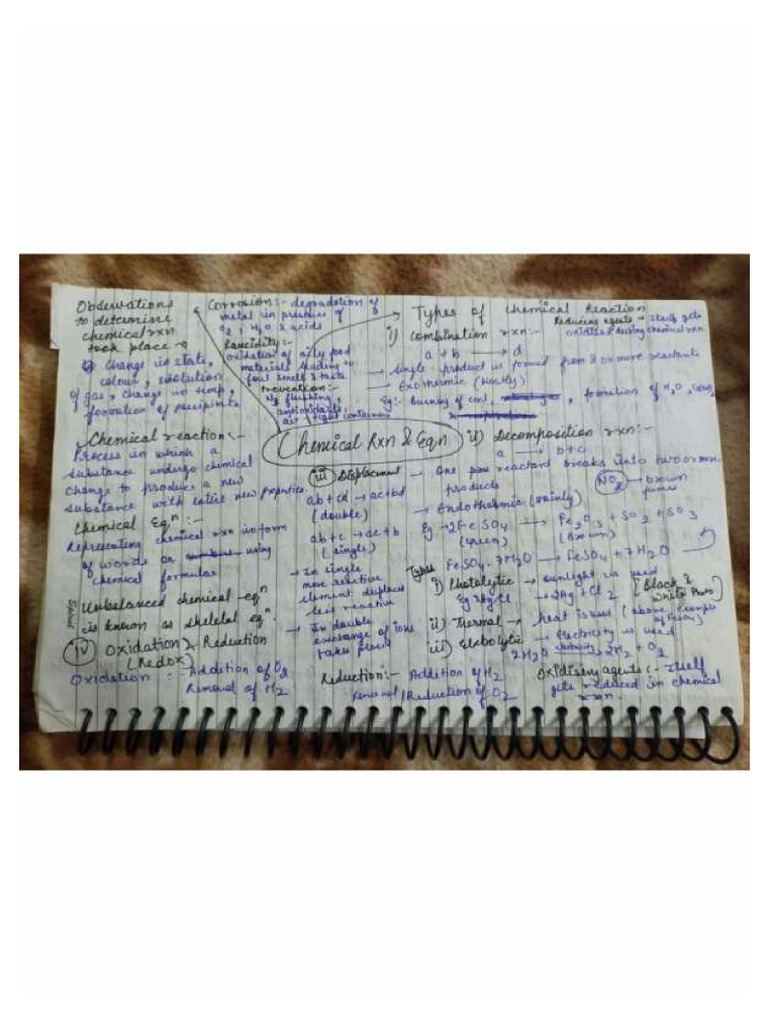 Observations
to determine
chemical rxn
took place →
change in state,
colour, evolution
of gas, change in temp,
formation of precipitate
Corrosion:- degradation of
metal in presence of
O2, H2O & acids
Rancidity:-
oxidation of oily food
materials leading to
foul smell & taste
Prevention:-
N2 flushing,
antioxidants,
air tight containers
Chemical reaction:-
Process in which a
substance undergo chemical
change to produce a new
substance with entire new properties
Chemical Eqn:-
Representing chemical rxn in form
of words or using
chemical formulas
Unbalanced chemical eqn
is known as skeletal eqn.
Chemical Rxn & Eqn
Types of Chemical Reaction
Reducing agents → Itself gets
oxidised during chemical rxn
i) Combination rxn:-
a + b → d
→ Single product is formed from 2 or more reactants
→ Exothermic (Mostly)
Eg:- Burning of coal, formation of H2O,
ii) Decomposition rxn:-
a → b+c
→ One reactant breaks into two or more
products
NO2 → brown
fumes
→ Endothermic (mainly)
Eg → 2FeSO4 → Fe2O3 + SO2 + SO3
(green) (Brown)
FeSO4.7H2O → FeSO4 + 7H2O
Types
i) Photolytic → sunlight is used
Eg 2AgCl → 2Ag + Cl2 [Black &
White Photo]
ii) Thermal → heat is used (above Example
of Ferrous)
iii) Elebolytic → Electricity is used
2H2O → 2H2 + O2
iii Displacement
ab + cd → ac + bd
(double)
ab + c → ac + b
(single)
→ In single
more reactive
element displaces
less reactive
→ In double
exchange of ions
takes place
iv Oxidation & Reduction
(Redox)
Oxidation :- Addition of O2
Removal of H2
Reduction:- Addition of H2
Removal/Reduction of O2
Oxidising agents:- Itself
gets reduced in chemical
rxn.